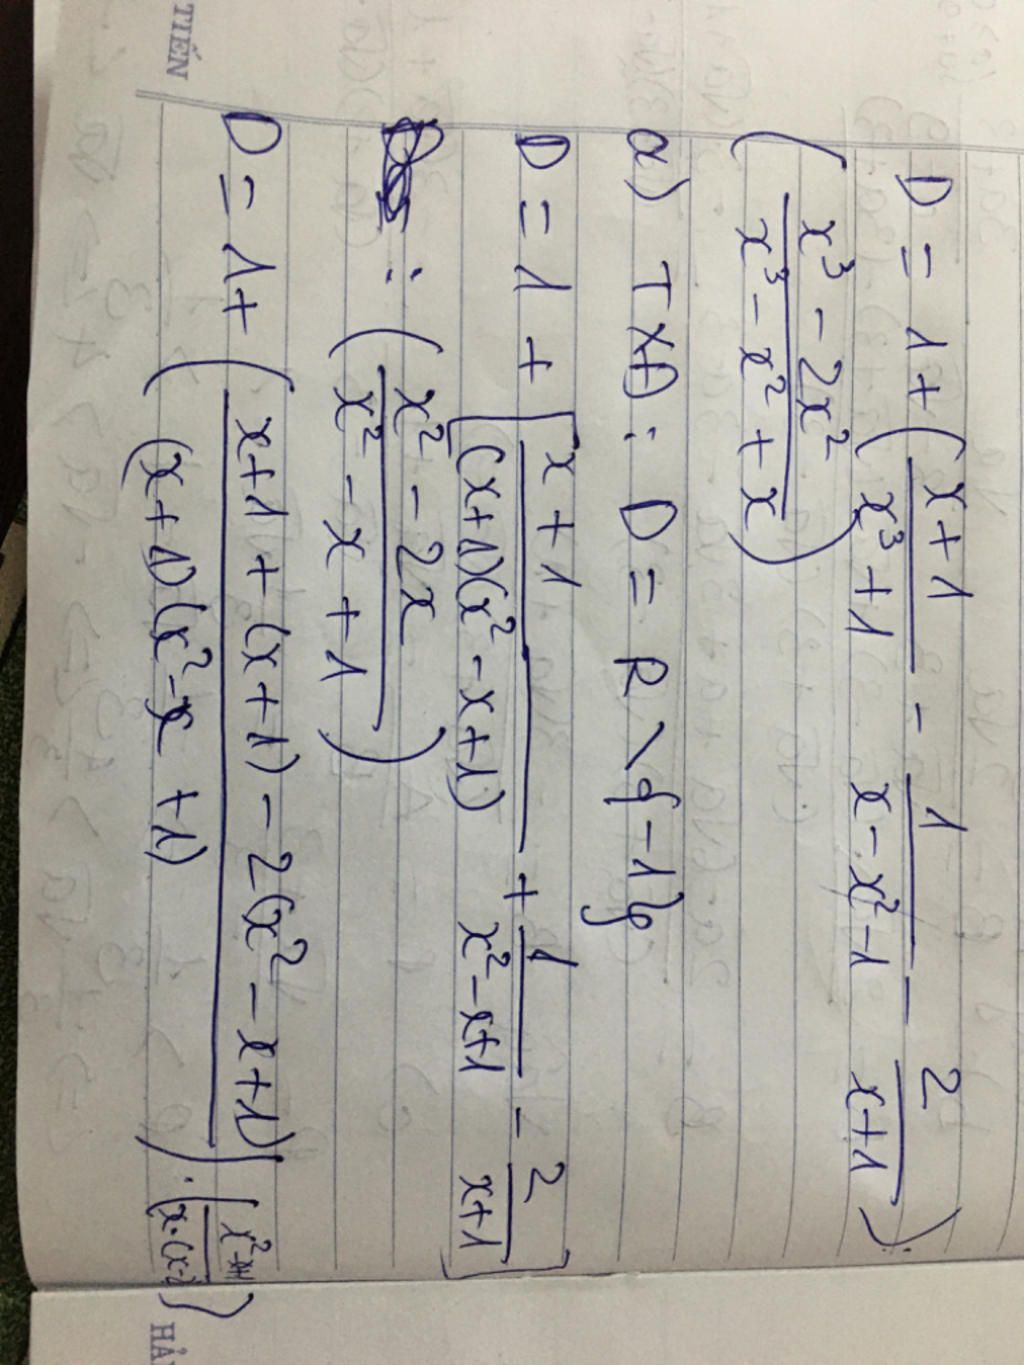 D = 1 + ( x+1 / x³+1 - 1 / x-x²-1 - 2 / x+1 ) :
( x³ - 2x² / x³ - x² + x )
a) TXĐ : D = R \ { -1 }
D = 1 + [ x+1 / (x+1)(x² - x+1) + 1 / x² - x+1 - 2 / x+1 ]
: ( x² - 2x / x² - x + 1 )
D = 1 + ( x+1 + (x+1) - 2(x² - x+1) / (x+1)(x² - x +1) ) . ( x² - x+1 / x.(x-2) )
TIẾN